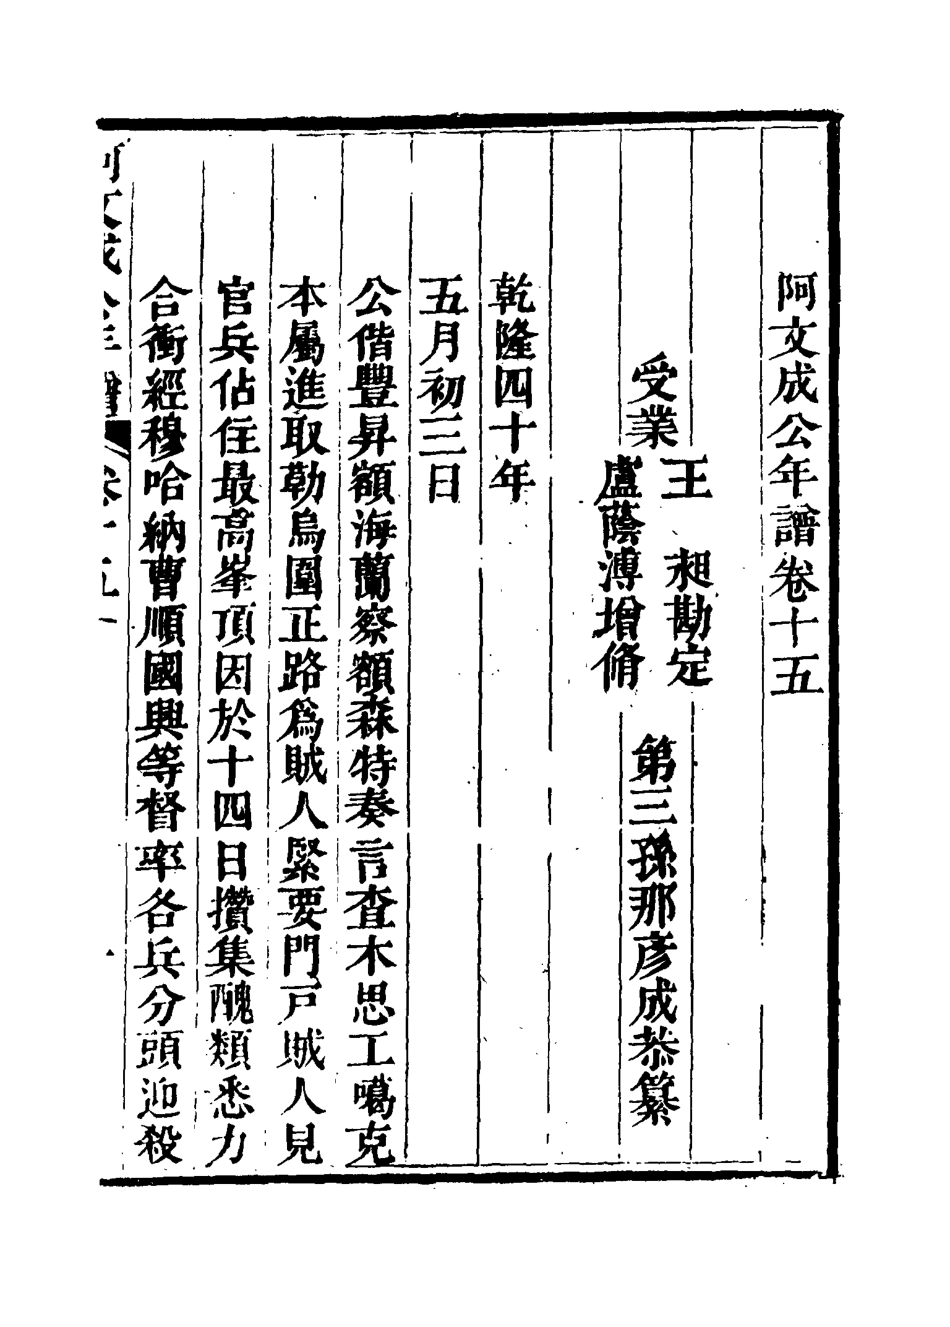 阿文成公年譜卷十五
受業
王　昶勘定
盧蔭溥增脩
第三孫那彥成恭纂
乾隆四十年
五月初三日
公偕豐昇額海蘭察額森特奏言查木思工噶克
本屬進取勒烏圍正路爲賊人緊要門戸賊人見
官兵佔住最高峯頂因於十四日攢集醜類悉力
合衝經穆哈納曹順國興等督率各兵分頭迎殺
阿文成公年譜　卷十五　一